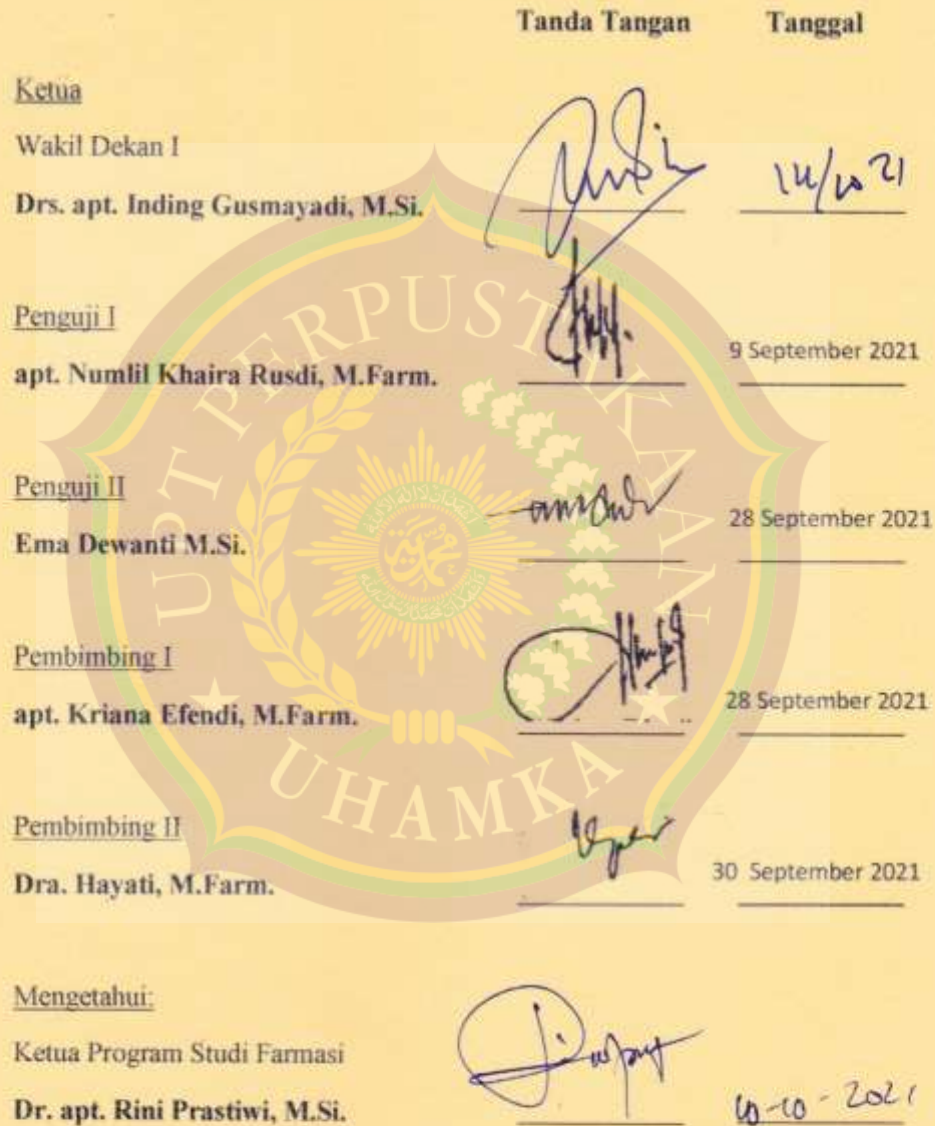 Tanda Tangan Tanggal
Ketua
Wakil Dekan I
Drs. apt. Inding Gusmayadi, M.Si.
14/10 21
Penguji I
apt. Numlil Khaira Rusdi, M.Farm.
9 September 2021
Penguji II
Ema Dewanti M.Si.
28 September 2021
Pembimbing I
apt. Kriana Efendi, M.Farm.
28 September 2021
Pembimbing II
Dra. Hayati, M.Farm.
30 September 2021
Mengetahui:
Ketua Program Studi Farmasi
Dr. apt. Rini Prastiwi, M.Si.
10-10-2021
UPT PERPUSTAKAAN
UHAMKA